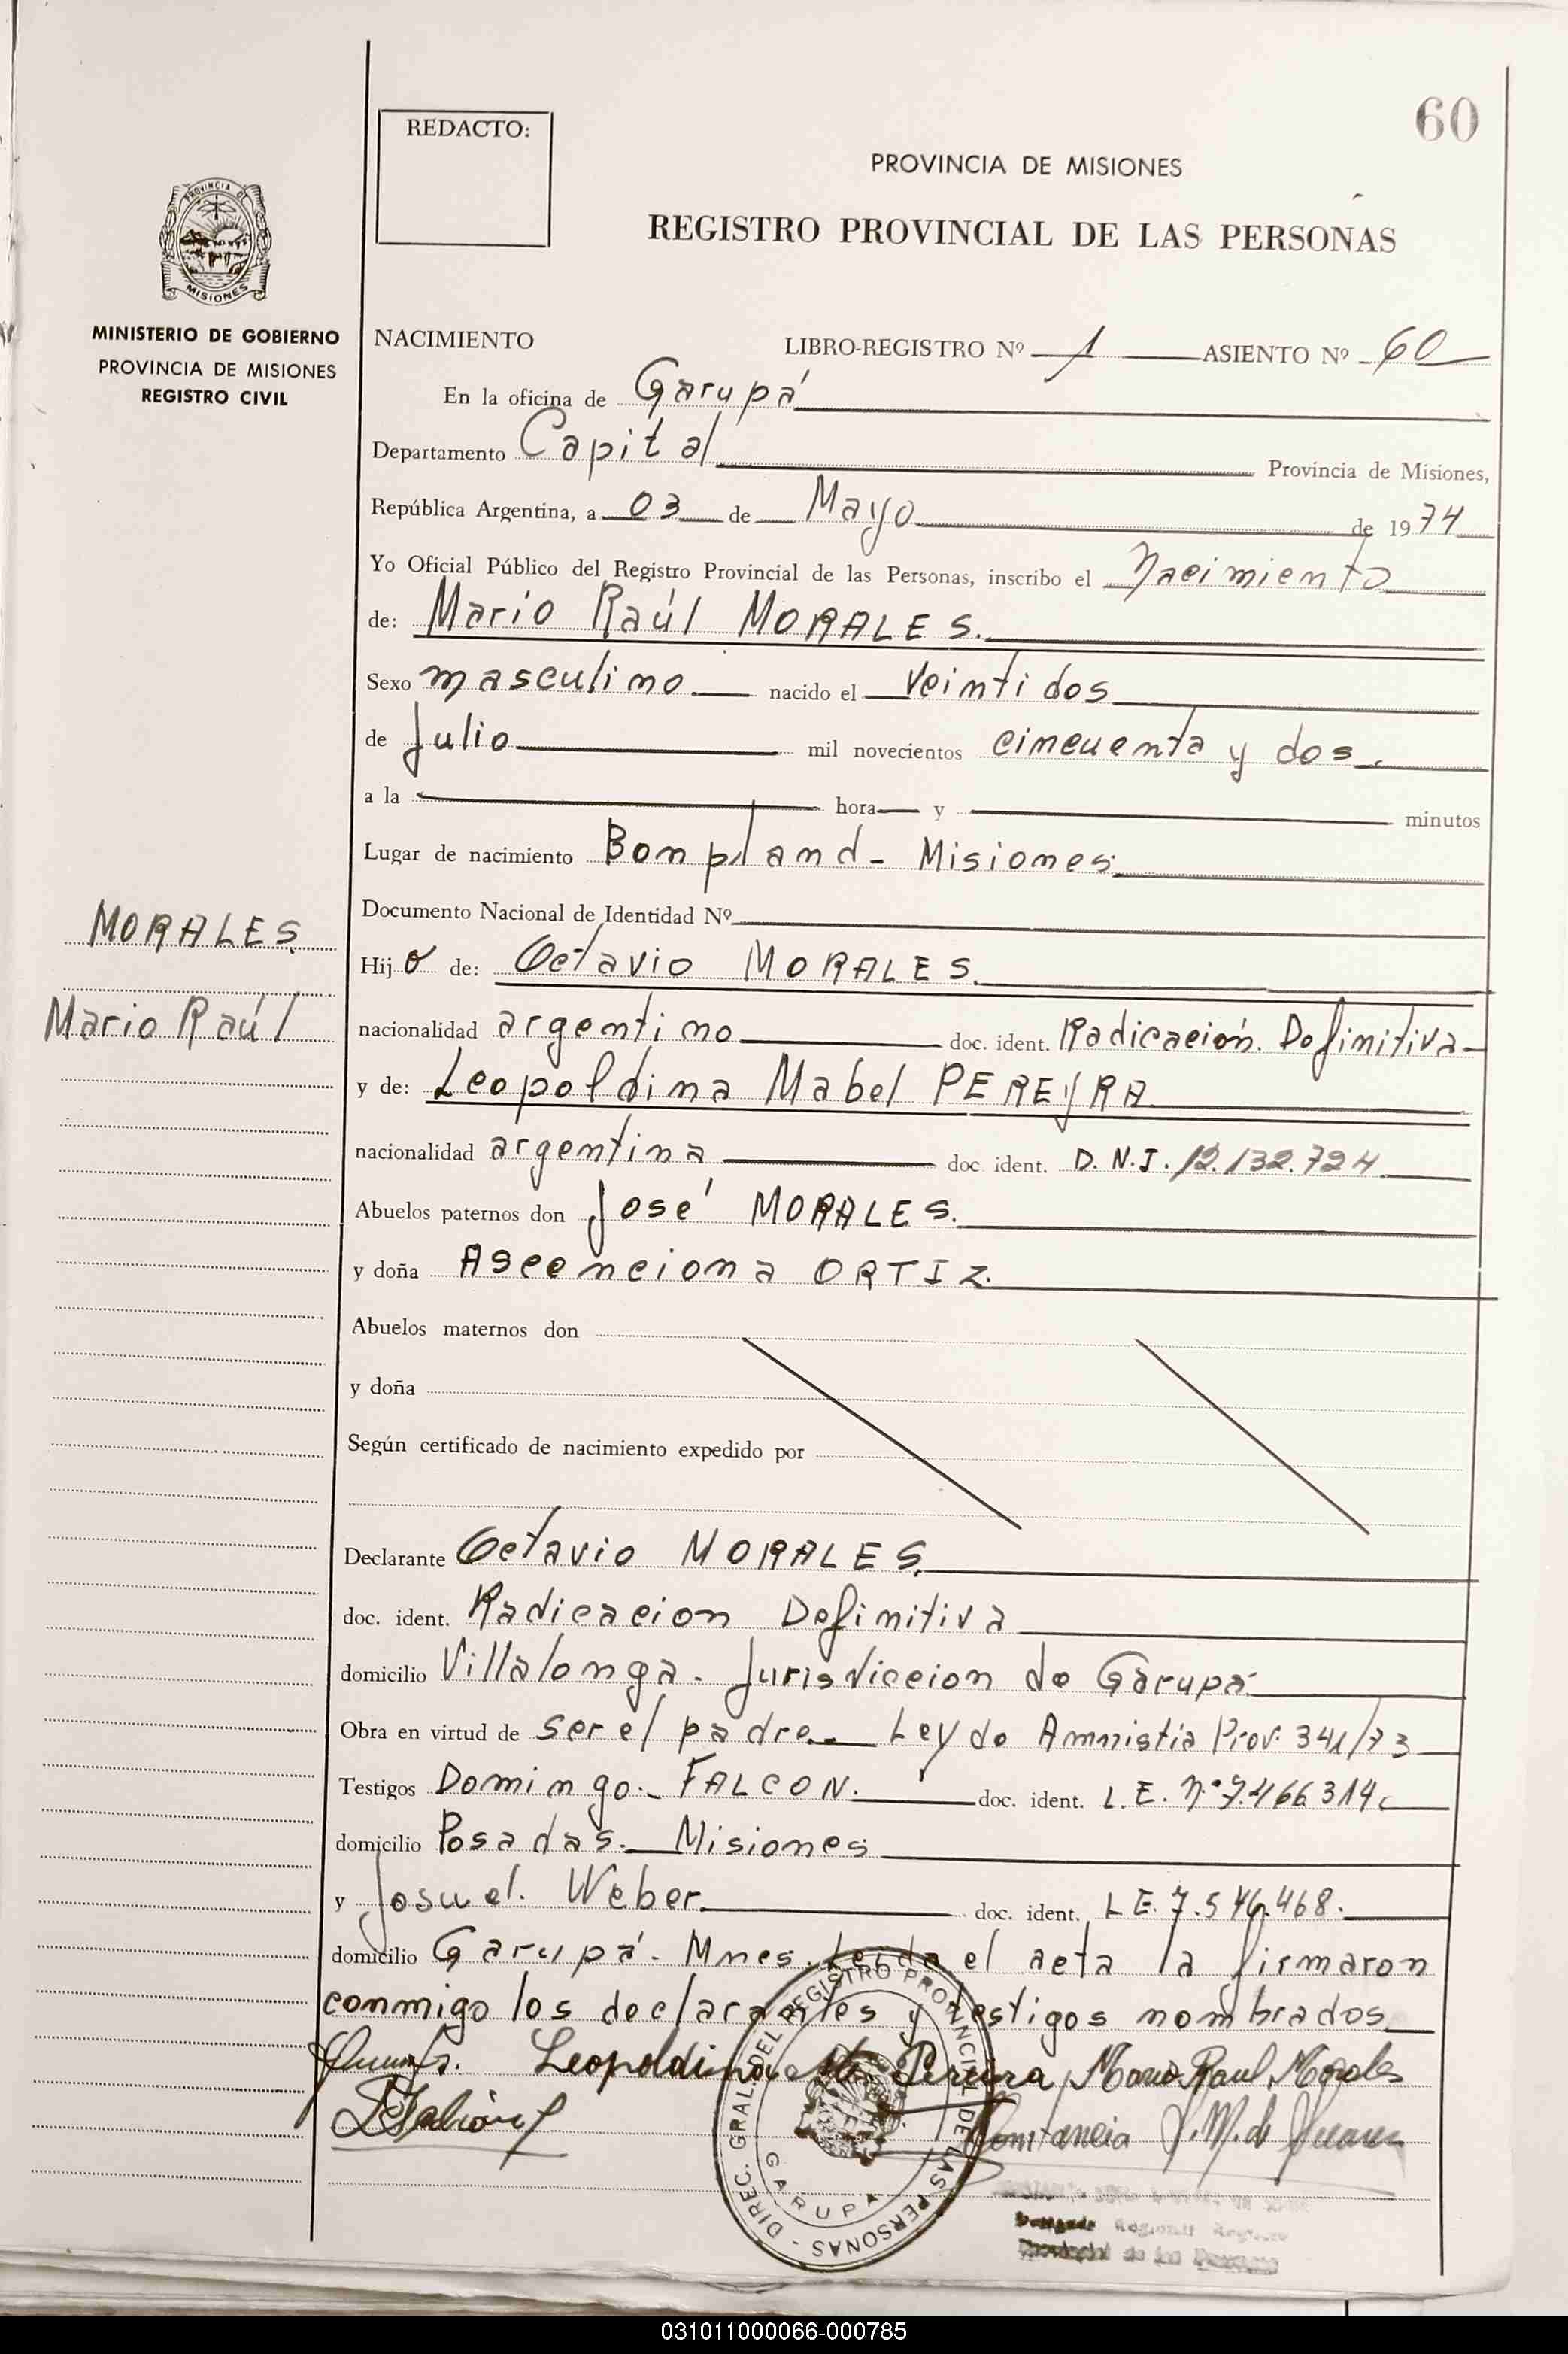 60
REDACTO:
PROVINCIA DE MISIONES
REGISTRO PROVINCIAL DE LAS PERSONAS
PROVINCIA DE
MISIONES
MINISTERIO DE GOBIERNO
PROVINCIA DE MISIONES
REGISTRO CIVIL
NACIMIENTO LIBRO-REGISTRO Nº 1 ASIENTO Nº 60
En la oficina de Garupá
Departamento Capital Provincia de Misiones,
República Argentina, a 03 de Mayo de 1974
Yo Oficial Público del Registro Provincial de las Personas, inscribo el Nacimiento
de: Mario Raúl MORALES.
Sexo masculino nacido el veintidos
de Julio mil novecientos cincuenta y dos.
a la hora y minutos
Lugar de nacimiento Bonpland - Misiones
Documento Nacional de Identidad Nº
MORALES.
Hijo de: Octavio MORALES.
Mario Raúl
nacionalidad argentino doc. ident. Radicación Definitiva-
y de: Leopoldina Mabel PEREYRA
nacionalidad argentina doc. ident. D.N.I. 12.132.724
Abuelos paternos don José MORALES.
y doña Ascenciona ORTIZ.
Abuelos maternos don
y doña
Según certificado de nacimiento expedido por
Declarante Octavio MORALES.
doc. ident. Radicacion Definitiva
domicilio Villalonga - Jurisdiccion de Garupá
Obra en virtud de ser el padre - Ley de Amnistia Prov. 341/73
Testigos Domingo - FALCON. doc. ident. L.E. Nº 7.466.314
domicilio Posadas - Misiones
y Josuel. Weber doc. ident. L.E. 7.546.468.
domicilio Garupá - Mnes. Leida el acta la firmaron
conmigo los declarantes y testigos nombrados
Leopoldina M. Pereira Mario Raul Morales
Constancia
DIREC. GRAL. DEL REGISTRO PROVINCIAL DE LAS PERSONAS -
GARUPA
Delegada Regional Registro
Provincial de las Personas
031011000066-000785